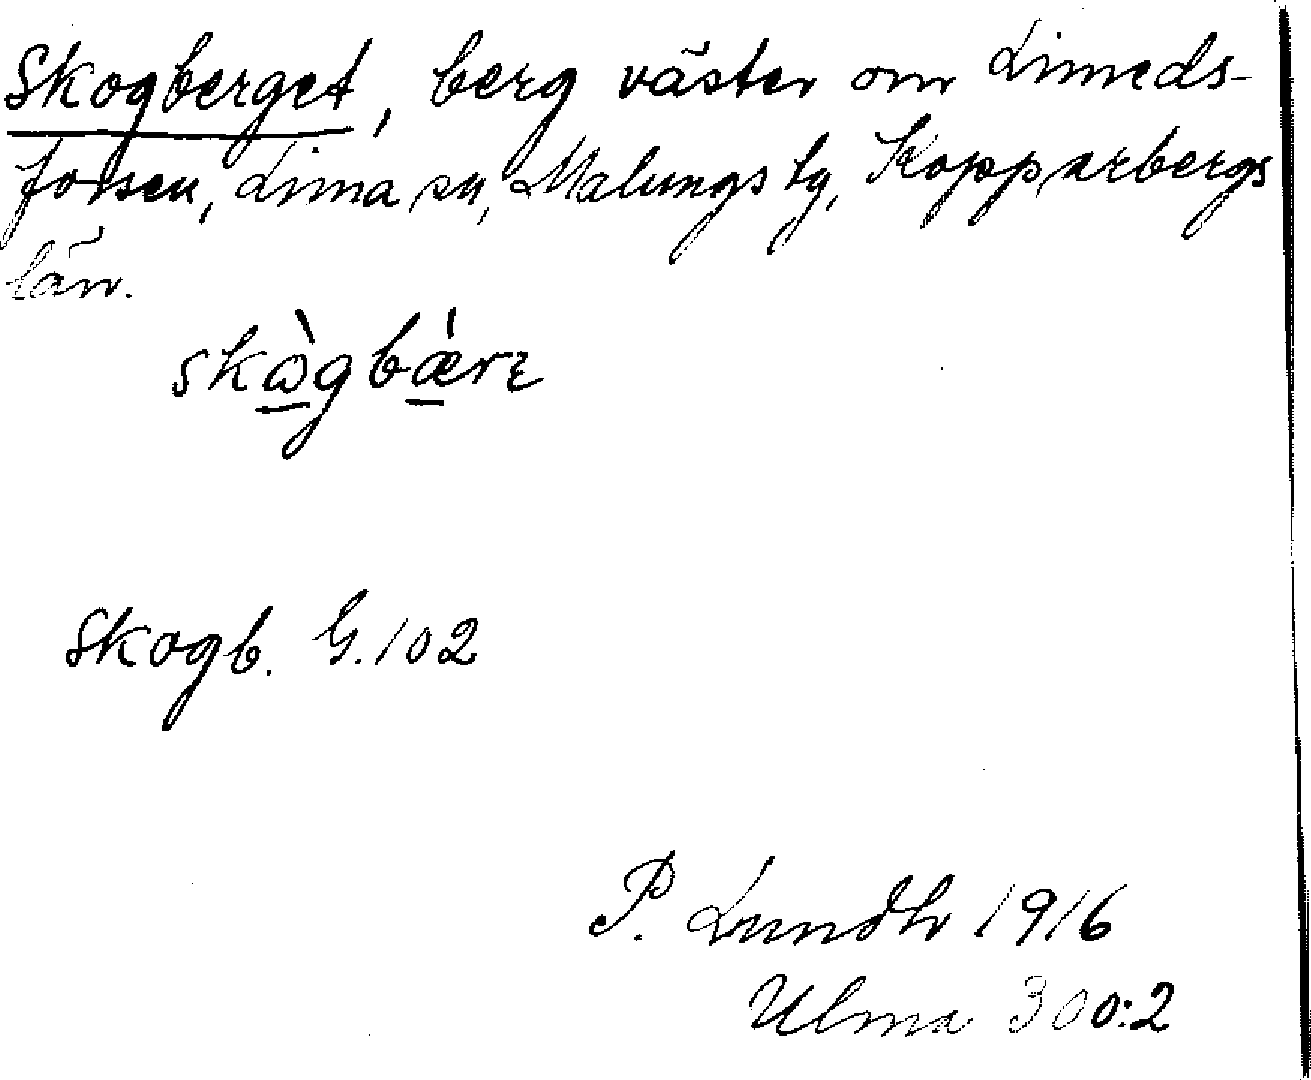 Skogberget, berg väster om Limeds-
forsen, Lima sn, Malungs tg, Kopparbergs
län.
skɷ̀gbǽrɛ
Skogb. G. 102
P. Lundh 1916
Ulma 300:2